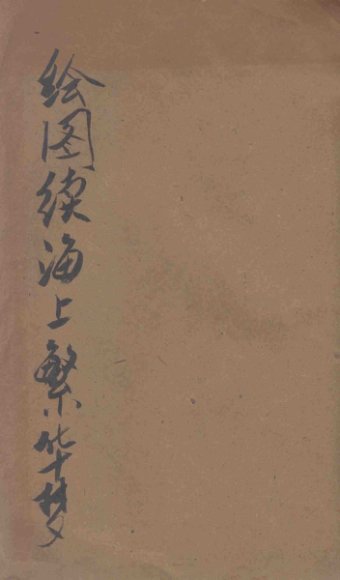 绘图续海上繁华梦